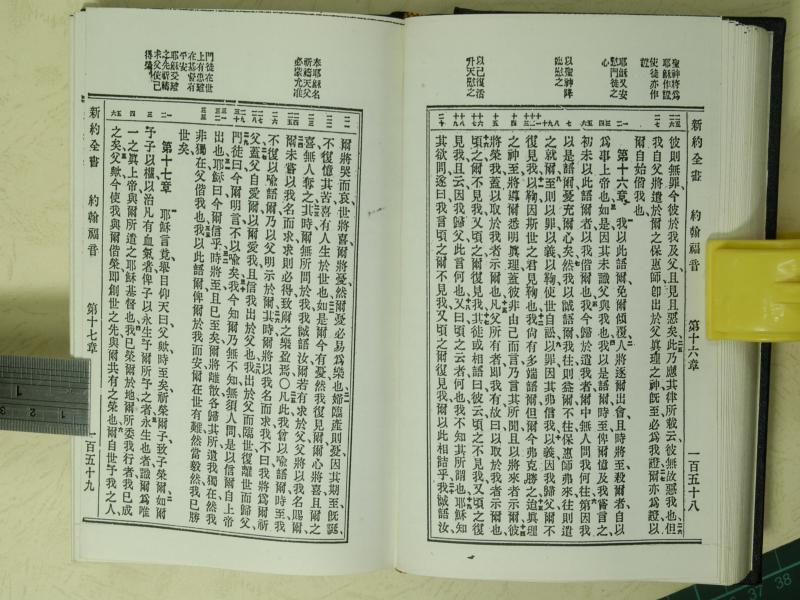 新約全書 約翰福音 第十六章 一百五十八
聖神將爲
耶穌作證
使徒亦作
證
耶穌又安
慰門徒之
心
以聖神降
臨慰之
以己復活
升天慰之
彼則無罪、今彼於我及父、且見且惡矣、此乃應其律所載云、彼無故惡我也、但
我自父將遣於爾之保惠師、卽出於父眞理之神、旣至、必爲我證、爾亦爲證、以
爾自始偕我也、
第十六章 我以此語爾、免爾傾覆、人將逐爾出會、且時將至、殺爾者自以
爲事上帝也、如是、因其未識父與我也、我以是語爾、時至、俾爾憶及我嘗言之、
初未以此語爾者、以我偕爾也、今我歸於遣我者、爾中無人問我何往、第因我
以是語爾、憂充爾心矣、然我以誠語爾、我往則益爾、不往、保惠師弗來、往則遣
之就爾、至則以罪以義以鞫、使世自訟、以罪、因其弗信我、以義、因我歸父、爾不
復見我、以鞫、因斯世之君見鞫也、我尚有多端語爾、但爾今弗克勝之、迨眞理
之神至、將導爾悉明眞理、蓋彼非由己而言、乃言其所聞、且以將來者示爾、彼
將榮我、蓋以取於我者示爾也、凡父所有者、卽我有、故曰以取於我者示爾也、
頃之、爾不見我、又頃之、爾復見我、其徒或相語曰、彼云頃之爾不見我、又頃之復
見我、且云因我歸父、此言何也、又曰、頃之云者何也、我不知其所謂也、耶穌知
其欲問、遂曰、我言頃之爾不見我、又頃之爾復見我、爾以此相詰乎、我誠語汝、
奉耶穌名
祈禱天父
必蒙允准
門徒在世
上有患難
在基督有
平安
耶穌受難
之先祈禱
求父使己
得榮
爾將哭而哀、世將喜、爾將憂、然爾憂必易爲樂也、婦臨產則憂、因其期至、旣誕、
不復憶其苦、喜有人生於世也、如是、爾今有憂、然我復見爾、爾心將喜、且爾之
喜、無人奪之、其時、爾無所問於我、我誠語汝、爾若有求於父、父將以我名賜爾、
爾未嘗以我名而求、求則必得、致爾之樂盈焉、〇凡此、我曾以喩語爾、時至、我
不復以喩語爾、乃以父明示於爾、其時爾將以我名而求、我不曰我將爲爾祈
父、蓋父自愛爾、以爾愛我、且信我出於父也、我出於父而臨世、復離世而歸父、
門徒曰、今爾明言、不以喩矣、我今知爾乃無不知、無須人問、是以信爾自上帝
出也、耶穌曰、今爾信乎、時將至、且已至矣、爾將離散、各歸其所、遺我獨在、然我
非獨在、父偕我也、我以此語爾、俾爾於我而安、爾在世有難、然當毅然、我已勝
世矣、
第十七章 耶穌言竟、舉目仰天曰、父歟、時至矣、祈榮爾子、致子榮爾、如爾
予子以權、以治凡有血氣者、俾子以永生予爾所予之者、永生也者、識爾爲唯
一之眞上帝、與爾所遣之耶穌基督也、我已榮爾於地、爾所委我行者、我已成
之矣、父歟、今使我與爾偕榮、卽創世之先、與爾共有之榮也、爾自世予我之人、
新約全書 約翰福音 第十七章 一百五十九
1 2 3
37 38